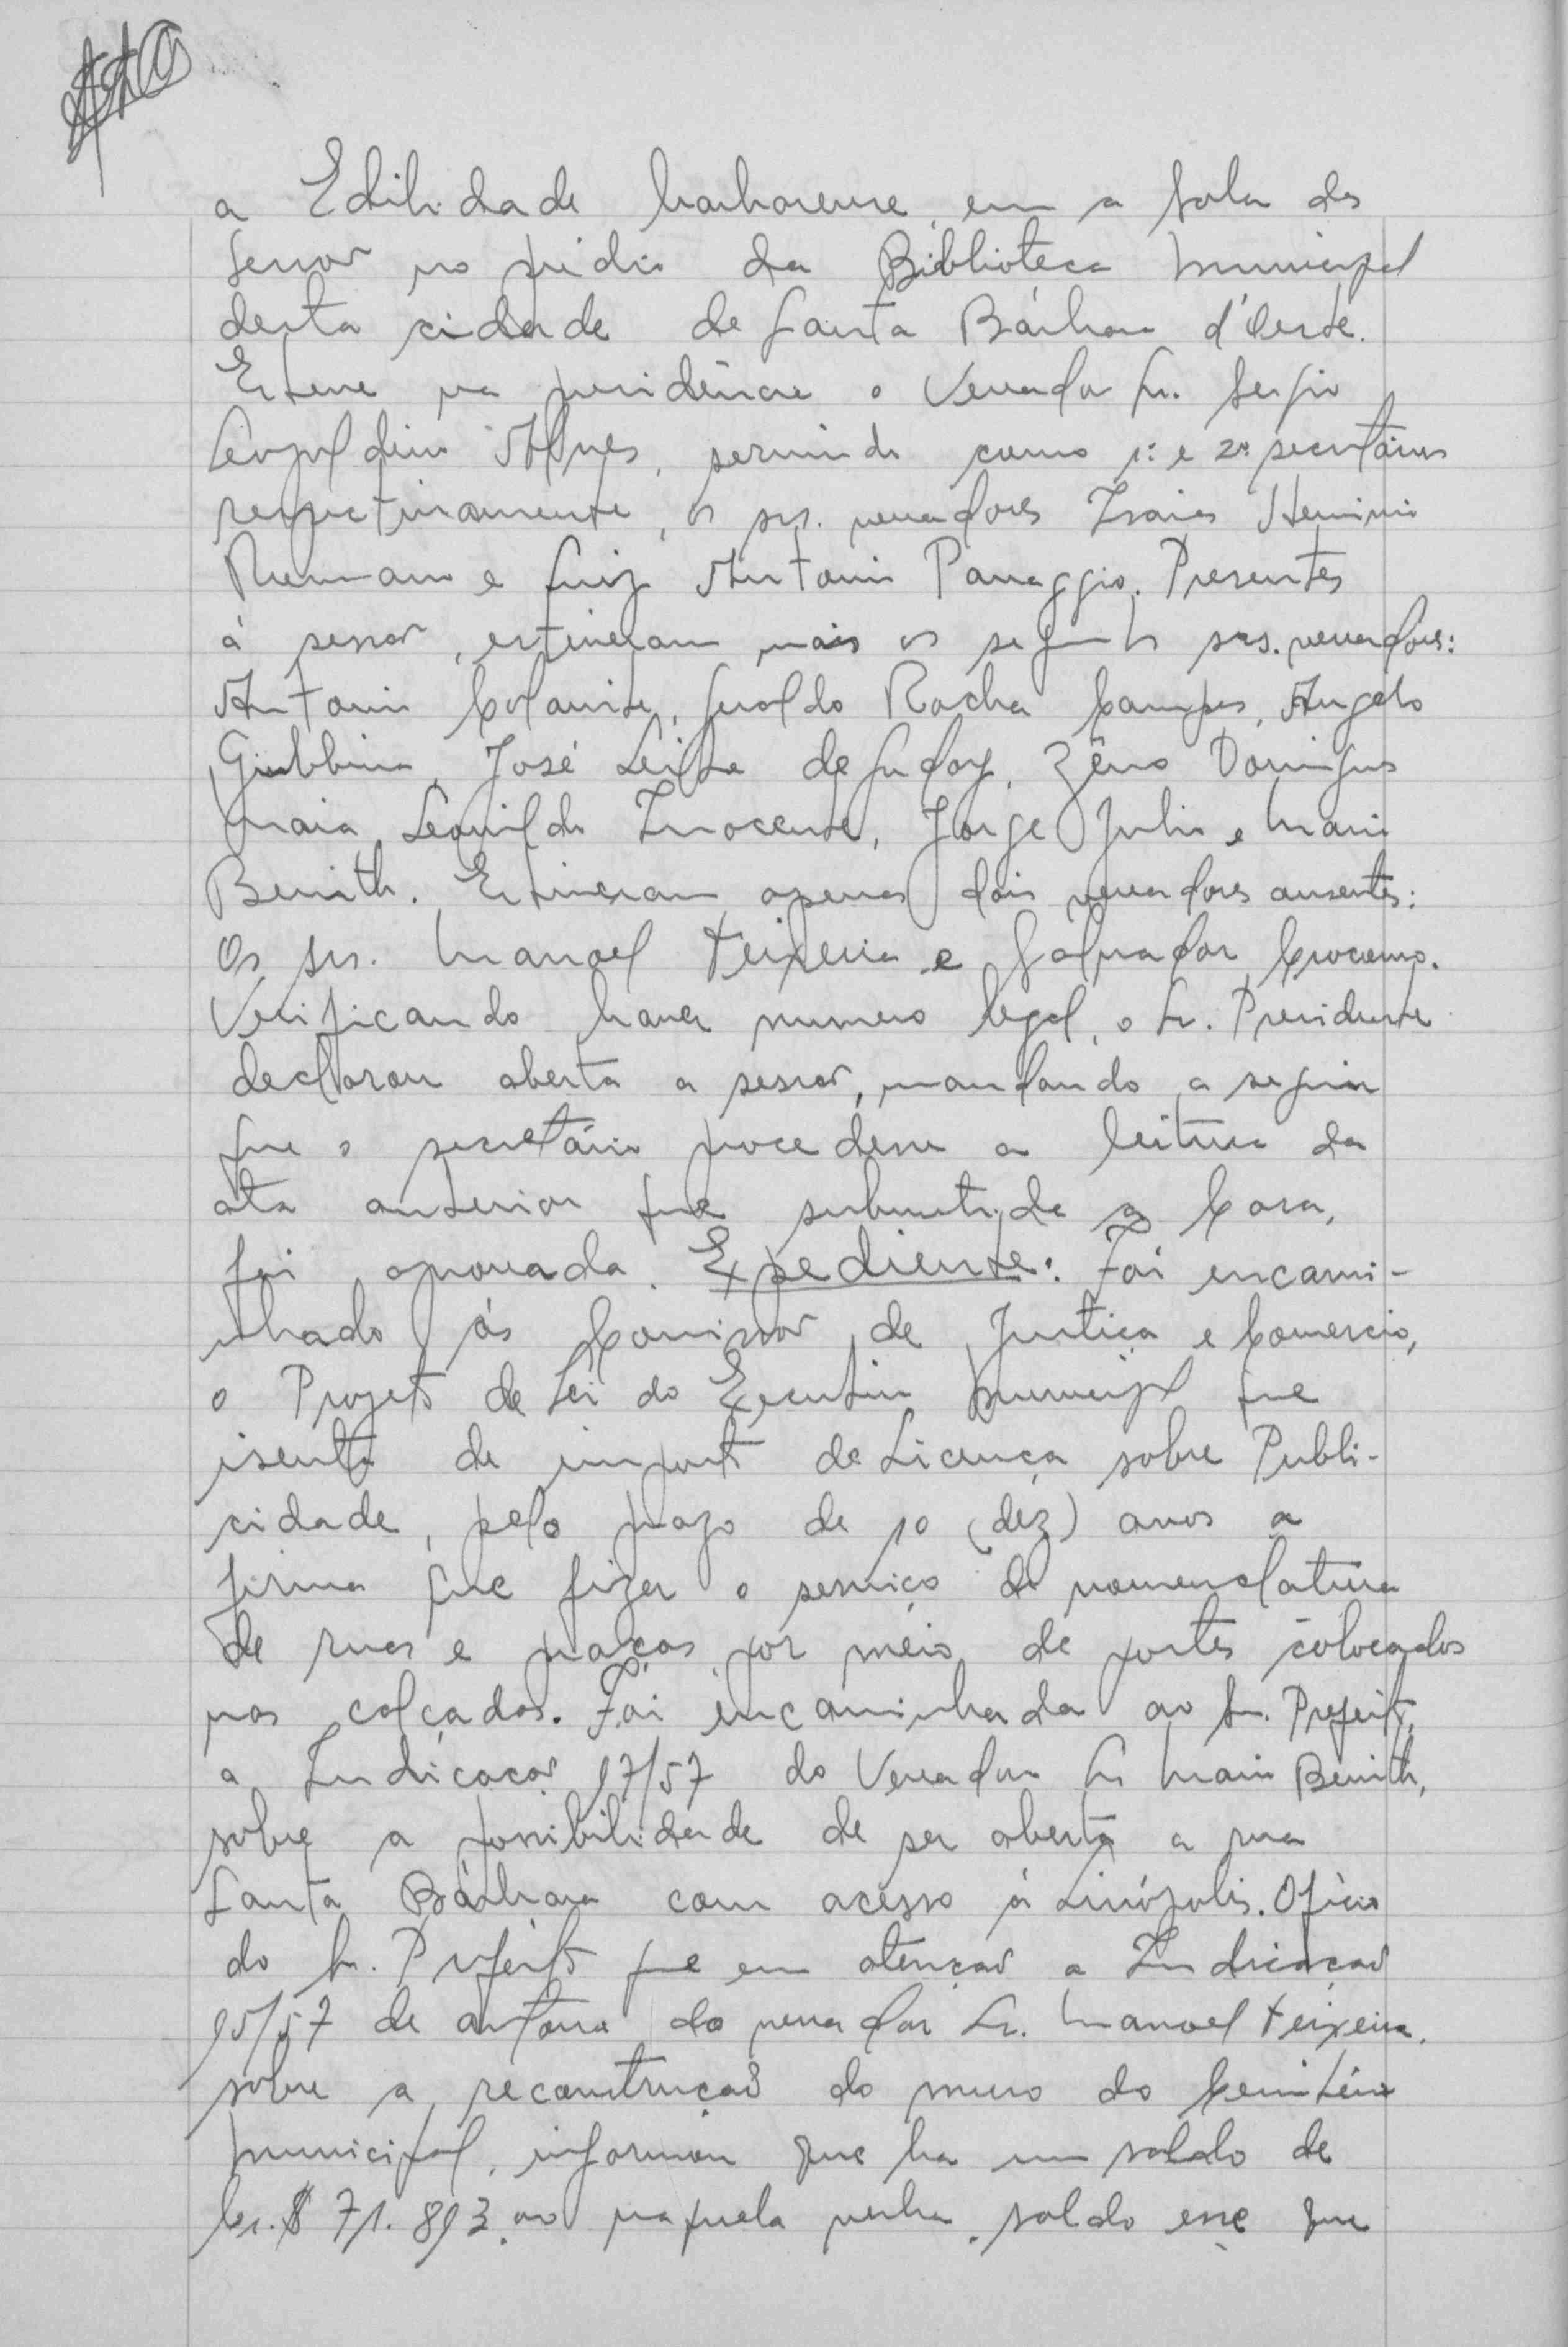 a Edilidade barbarense, em a sala das
sessoẽs no prédio da Biblioteca Municipal
desta cidade de Santa Bárbara d'Oeste.
Esteve na presidência o Vereador Sr. Sergio
Leopoldino Alves, servindo como 1º e 2º secretários
respectivamente, os srs. vereadores Isaias Herminio
Romano e Luiz Antonio Panaggio. Presentes
á sessão, estiveram mais os seguintes srs. vereadores:
Antonio Colamite, Geraldo Rocha Campos, Angelo
Giubbina, José Leite de Godoy, Zêno Domingues
Maia, Leonildo Inocente, Jorge Julio e Mario
Benith. Estiveram apenas dois vereadores ausentes:
Os srs. Manoel Teixeira e Salvador Crocomo.
Verificando haver numero legal, o Sr. Presidente
declarou aberta a sessão, mandando a seguir
que o secretário procedesse a leitura da
ata anterior que submetida a Casa,
foi aprovada. Expediente: Foi encami-
nhado ás Comissões de Justiça e Comercio,
o Projeto de Lei do Executivo Municipal que
isenta de imposto de Licença sobre Publi-
cidade, pelo prazo de 10 (déz) anos a
firma que fizer o serviço de nomenclatura
de ruas e praças por meio de postes colocados
nas calçadas. Foi encaminhada ao Sr. Prefeito,
a Indicação 17/57 do Vereador Sr Mario Benith,
sobre a possibilidade de ser aberta a rua
Santa Bárbara com acesso á Linópolis. Ofício
do Sr. Prefeito que em atenção a Indicação
15/57 de autoria do vereador Sr. Manoel Teixeira,
sobre a reconstrução do muro do Cemitério
Municipal, informou que ha um saldo de
Cr.$ 71.893,00 naquela verba, saldo esse que